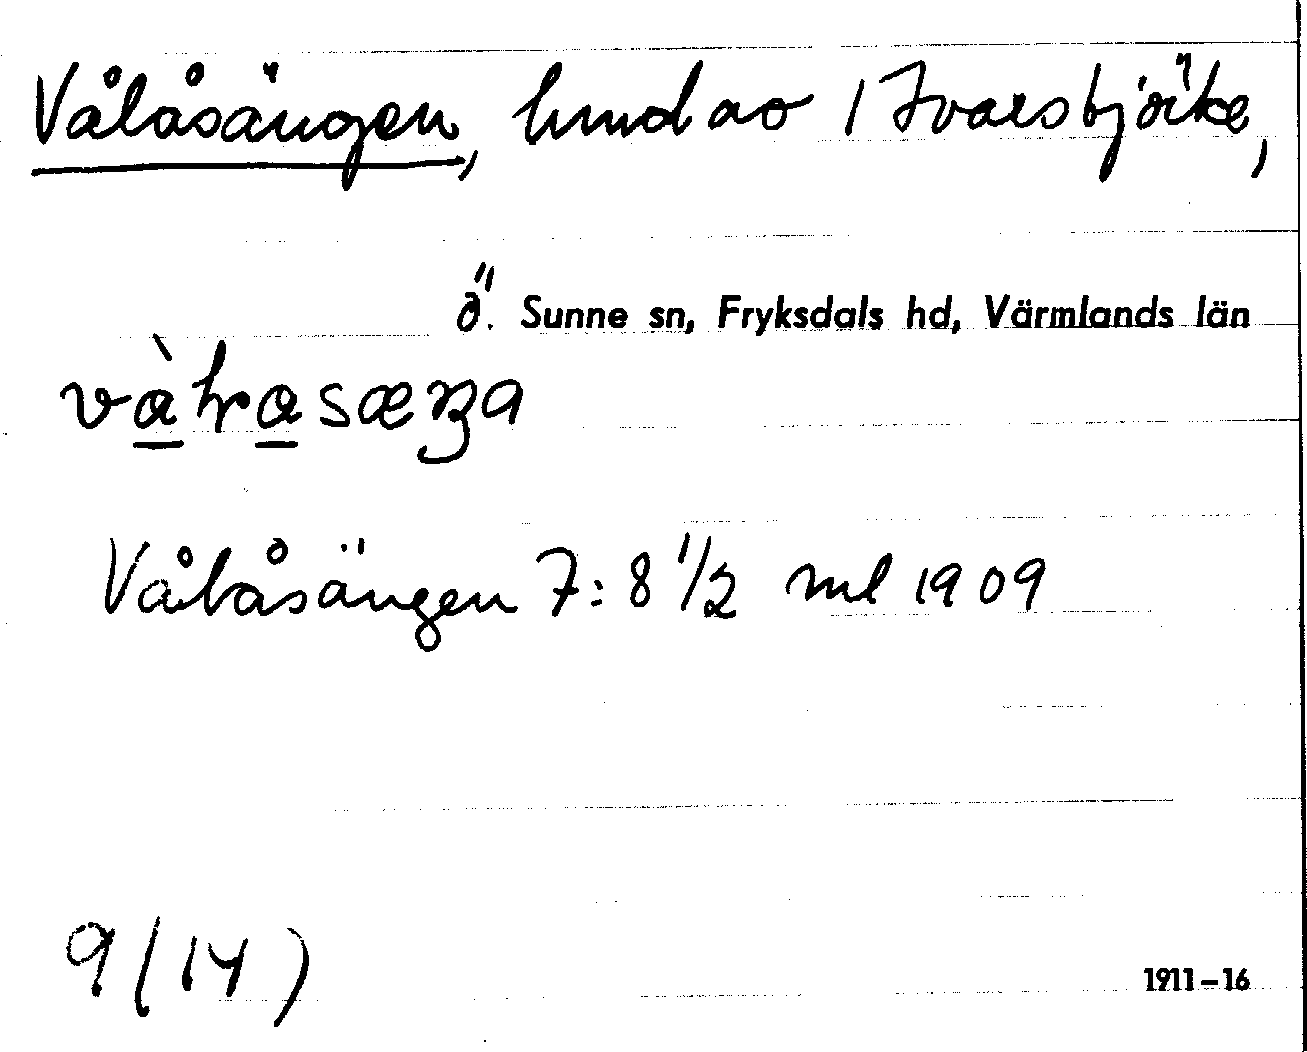 Vålåsängen, hmd av 1 Ivarsbjörke,
Ö. Sunne sn, Fryksdals hd, Värmlands län
Vålåsängen 7:8 1/2 mtl 1909
9 (14)
1911–16